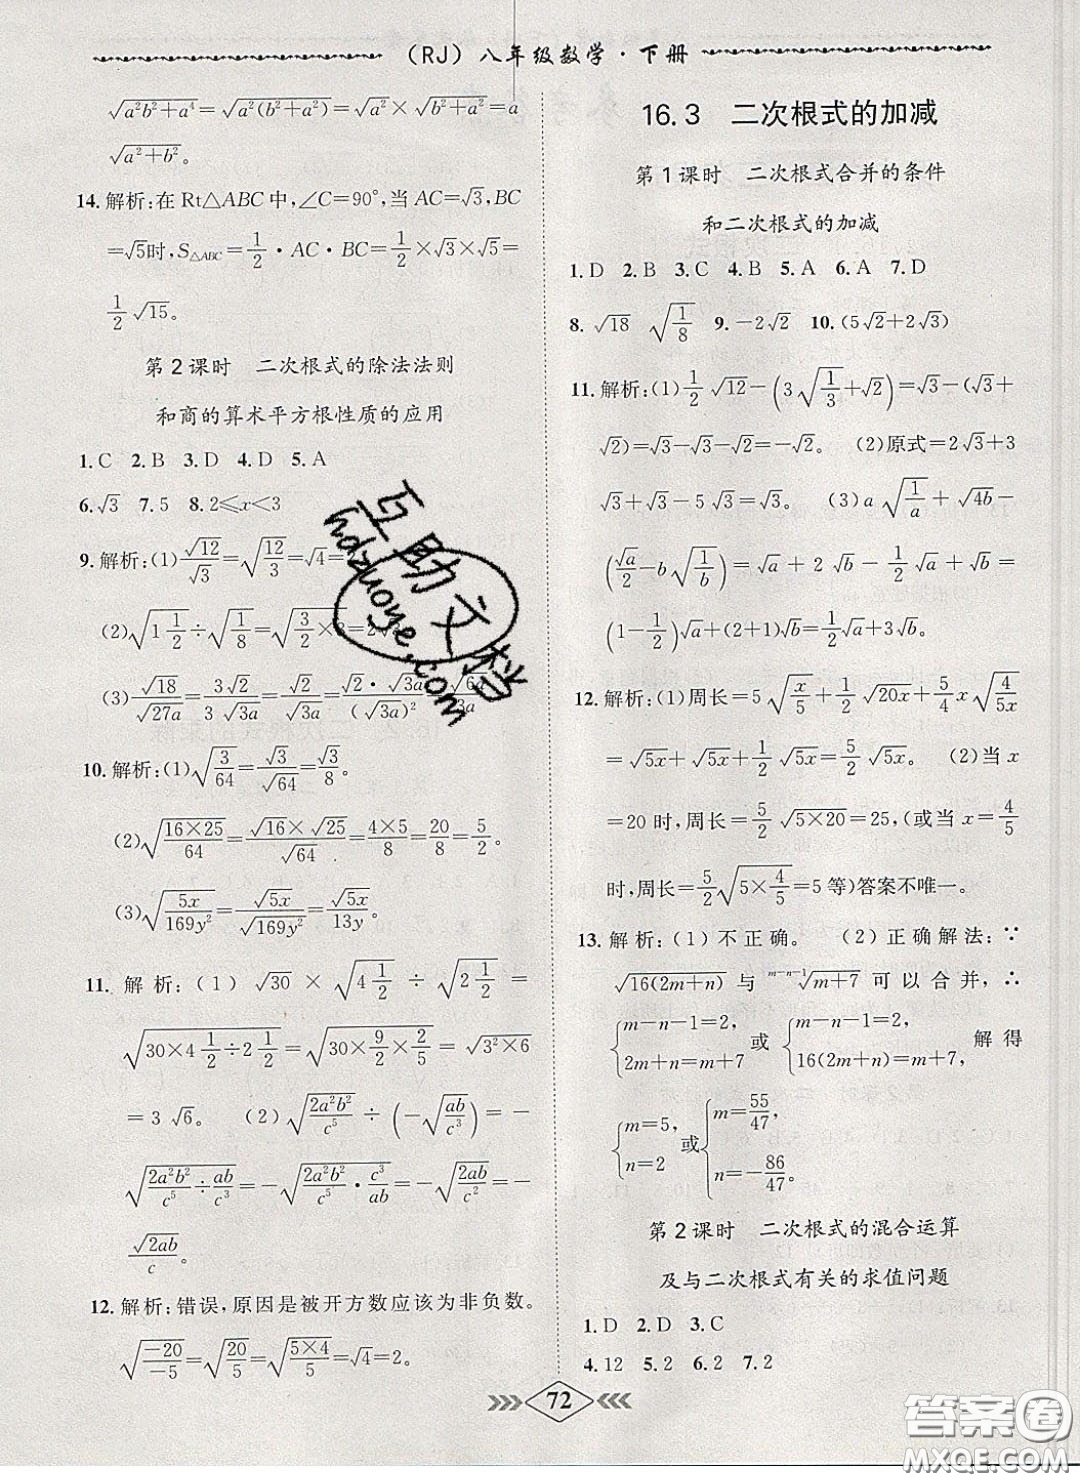 (RJ) 八年级数学·下册
√(a²b²+a⁴)=√(a²(b²+a²))=√(a²)×√(b²+a²)=a
√(a²+b²)。
14.解析:在Rt△ABC中,∠C=90°,当AC=√3,BC
=√5时,S△ABC=1/2·AC·BC=1/2×√3×√5=
1/2√15。
第2课时 二次根式的除法法则
和商的算术平方根性质的应用
1.C 2.B 3.D 4.D 5.A
6.√3 7.5 8.2≤x<3
9.解析:(1)√12/√3=√(12/3)=√4=
(2)√(1 1/2)÷√(1/8)=√(3/2×
(3)√18/√(27a)=3√2/(3√(3a))=√2/√(3a)=√2·√(3a)/(√(3a))²=
10.解析:(1)√(3/64)=√3/√64=√3/8。
(2)√(16×25/64)=√16×√25/√64=4×5/8=20/8=5/2。
(3)√(5x/169y²)=√(5x)/√(169y²)=√(5x)/13y。
11.解析:(1)√30×√(4 1/2)÷√(2 1/2)=
√(30×4 1/2÷2 1/2)=√(30×9/2×2/5)=√(3²×6)
=3√6。 (2)√(2a²b²/c⁵)÷(-√(ab/c³))=-
√(2a²b²/c⁵÷ab/c³)=-√(2a²b²/c⁵·c³/ab)=-√(2ab/c²)=-
√(2ab)/c。
12.解析:错误,原因是被开方数应该为非负数。
√(-20/-5)=√(20/5)=√(5×4/5)=√4=2。
16.3 二次根式的加减
第1课时 二次根式合并的条件
和二次根式的加减
1.D 2.B 3.C 4.B 5.A 6.A 7.D
8.√18 √(1/8) 9.-2√2 10.(5√2+2√3)
11.解析:(1)1/2√12-(3√(1/3)+√2)=√3-(√3+
√2)=√3-√3-√2=-√2。 (2)原式=2√3+3
√3+√3-5√3=√3。 (3)a√(1/a)+√(4b)-
(√a/2-b√(1/b))=√a+2√b-1/2√a+√b=
(1-1/2)√a+(2+1)√b=1/2√a+3√b。
12.解析:(1)周长=5√(x/5)+1/2√(20x)+5/4x√(4/5x)
=√(5x)+√(5x)+1/2√(5x)=5/2√(5x)。 (2)当x
=20时,周长=5/2√(5×20)=25,(或当x=4/5
时,周长=5/2√(5×4/5)=5等)答案不唯一。
13.解析:(1)不正确。 (2)正确解法:∵
√(16(2m+n))与ᵐ⁻ⁿ⁻¹√(m+7)可以合并,∴
{m-n-1=2, 2m+n=m+7或{m-n-1=2, 16(2m+n)=m+7,解得
{m=5, n=2或{m=55/47, n=-86/47。
第2课时 二次根式的混合运算
及与二次根式有关的求值问题
1.D 2.D 3.C
4.12 5.2 6.2 7.2
72
互助文档
hdzuoye.com
答案圈
MXQE.COM